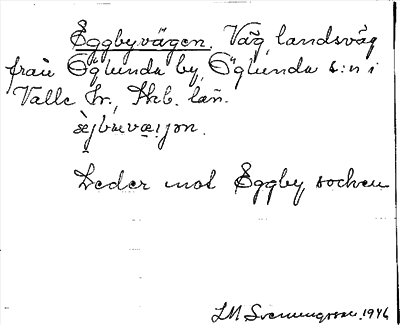 Eggbyvägen. Väg, landsväg
från Öglunda by, Öglunda s:n i
Valle hr., Skb. län.
Leder mot Eggby socken
LM Svenungsson. 1946